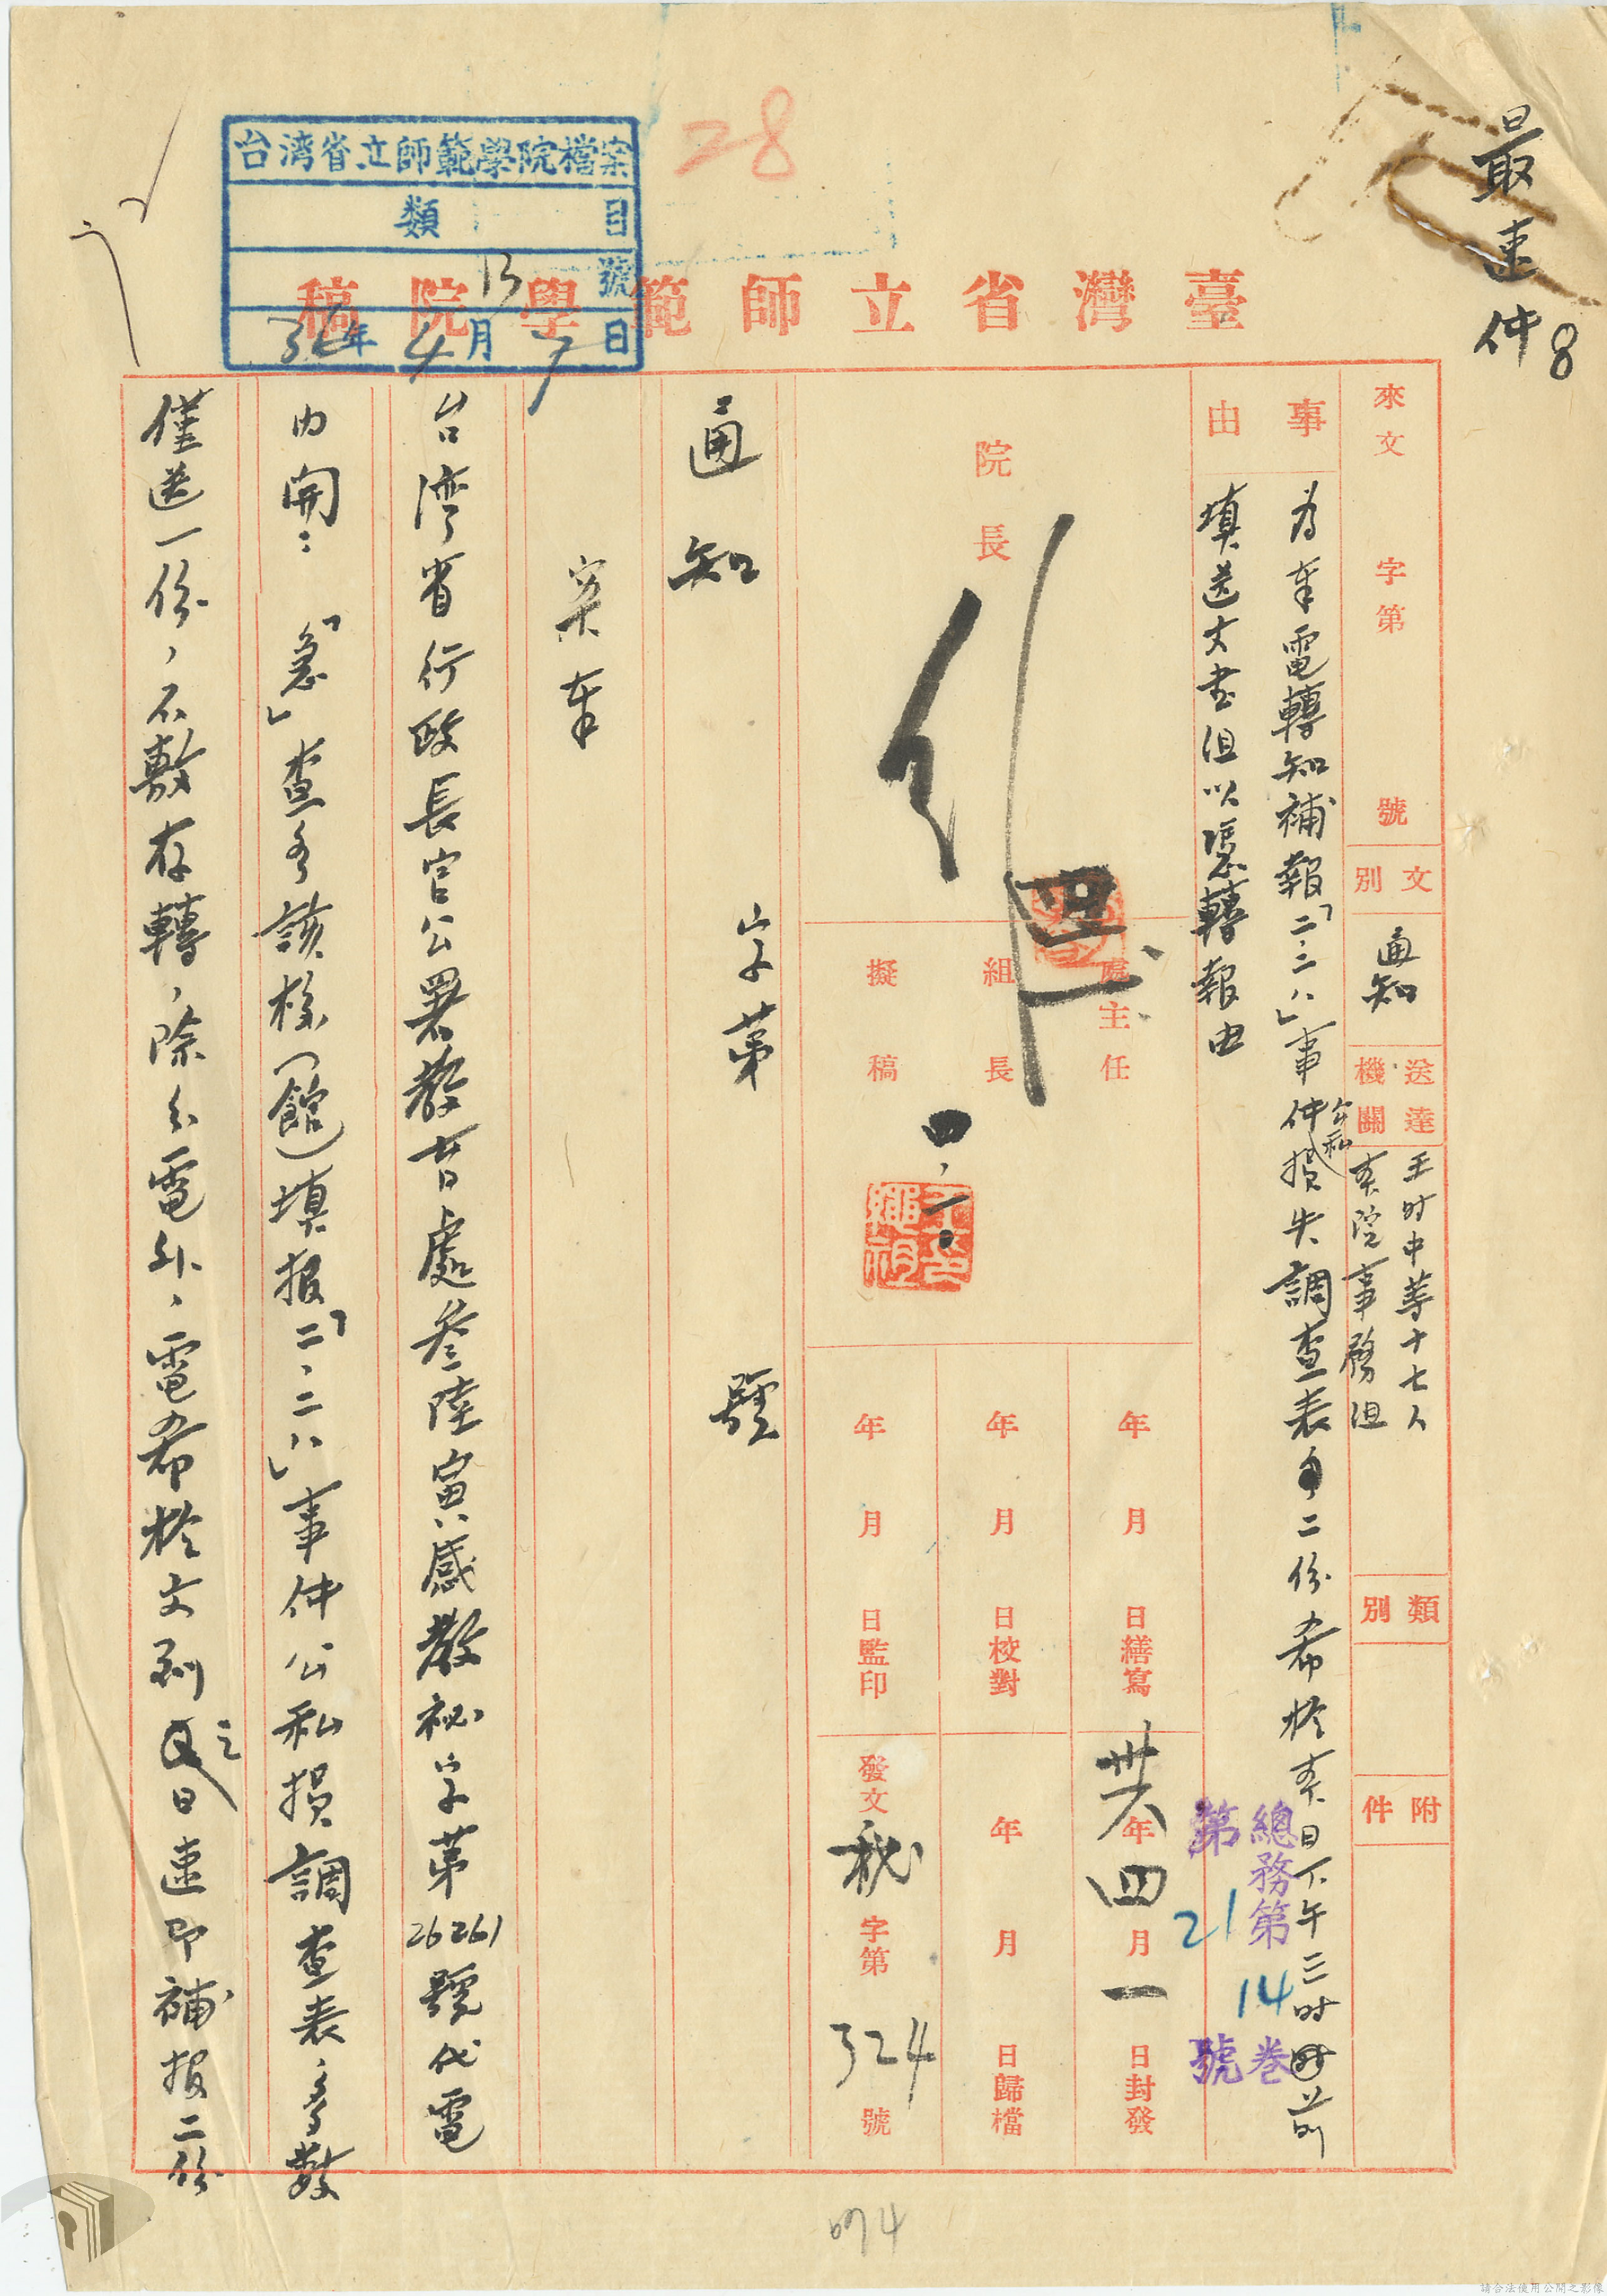 最速件
8
28
台湾省立師範學院檔案
類 目
13 號
36年4月7日
臺灣省立師範學院稿
來文 字第 號
文別 通知
送達機關 王时中等十七人
本院事務組
類別
附件
事由
為奉電轉知補報「二、二八」事件公私損失調查表二份希於本日下午三时前
填送文書組以憑轉報由
院長
處主任
組長
擬稿
四、一、
王繩祖
年 月 日繕寫
年 月 日校對
年 月 日監印
卅六年四月一日封發
年 月 日歸檔
發文 秘 字第 324 號
總務第 14 卷
第 21 號
通知 字第 號
案奉
台湾省行政長官公署教育處叁陸寅感教祕字第26261號代電
内開：「急」查各該校（館）填报「二、二八」事件公私損調查表，多数
僅送一份，不敷存轉，除分電外，電希於文到之日速即補报二份
074
請合法使用公開之影像